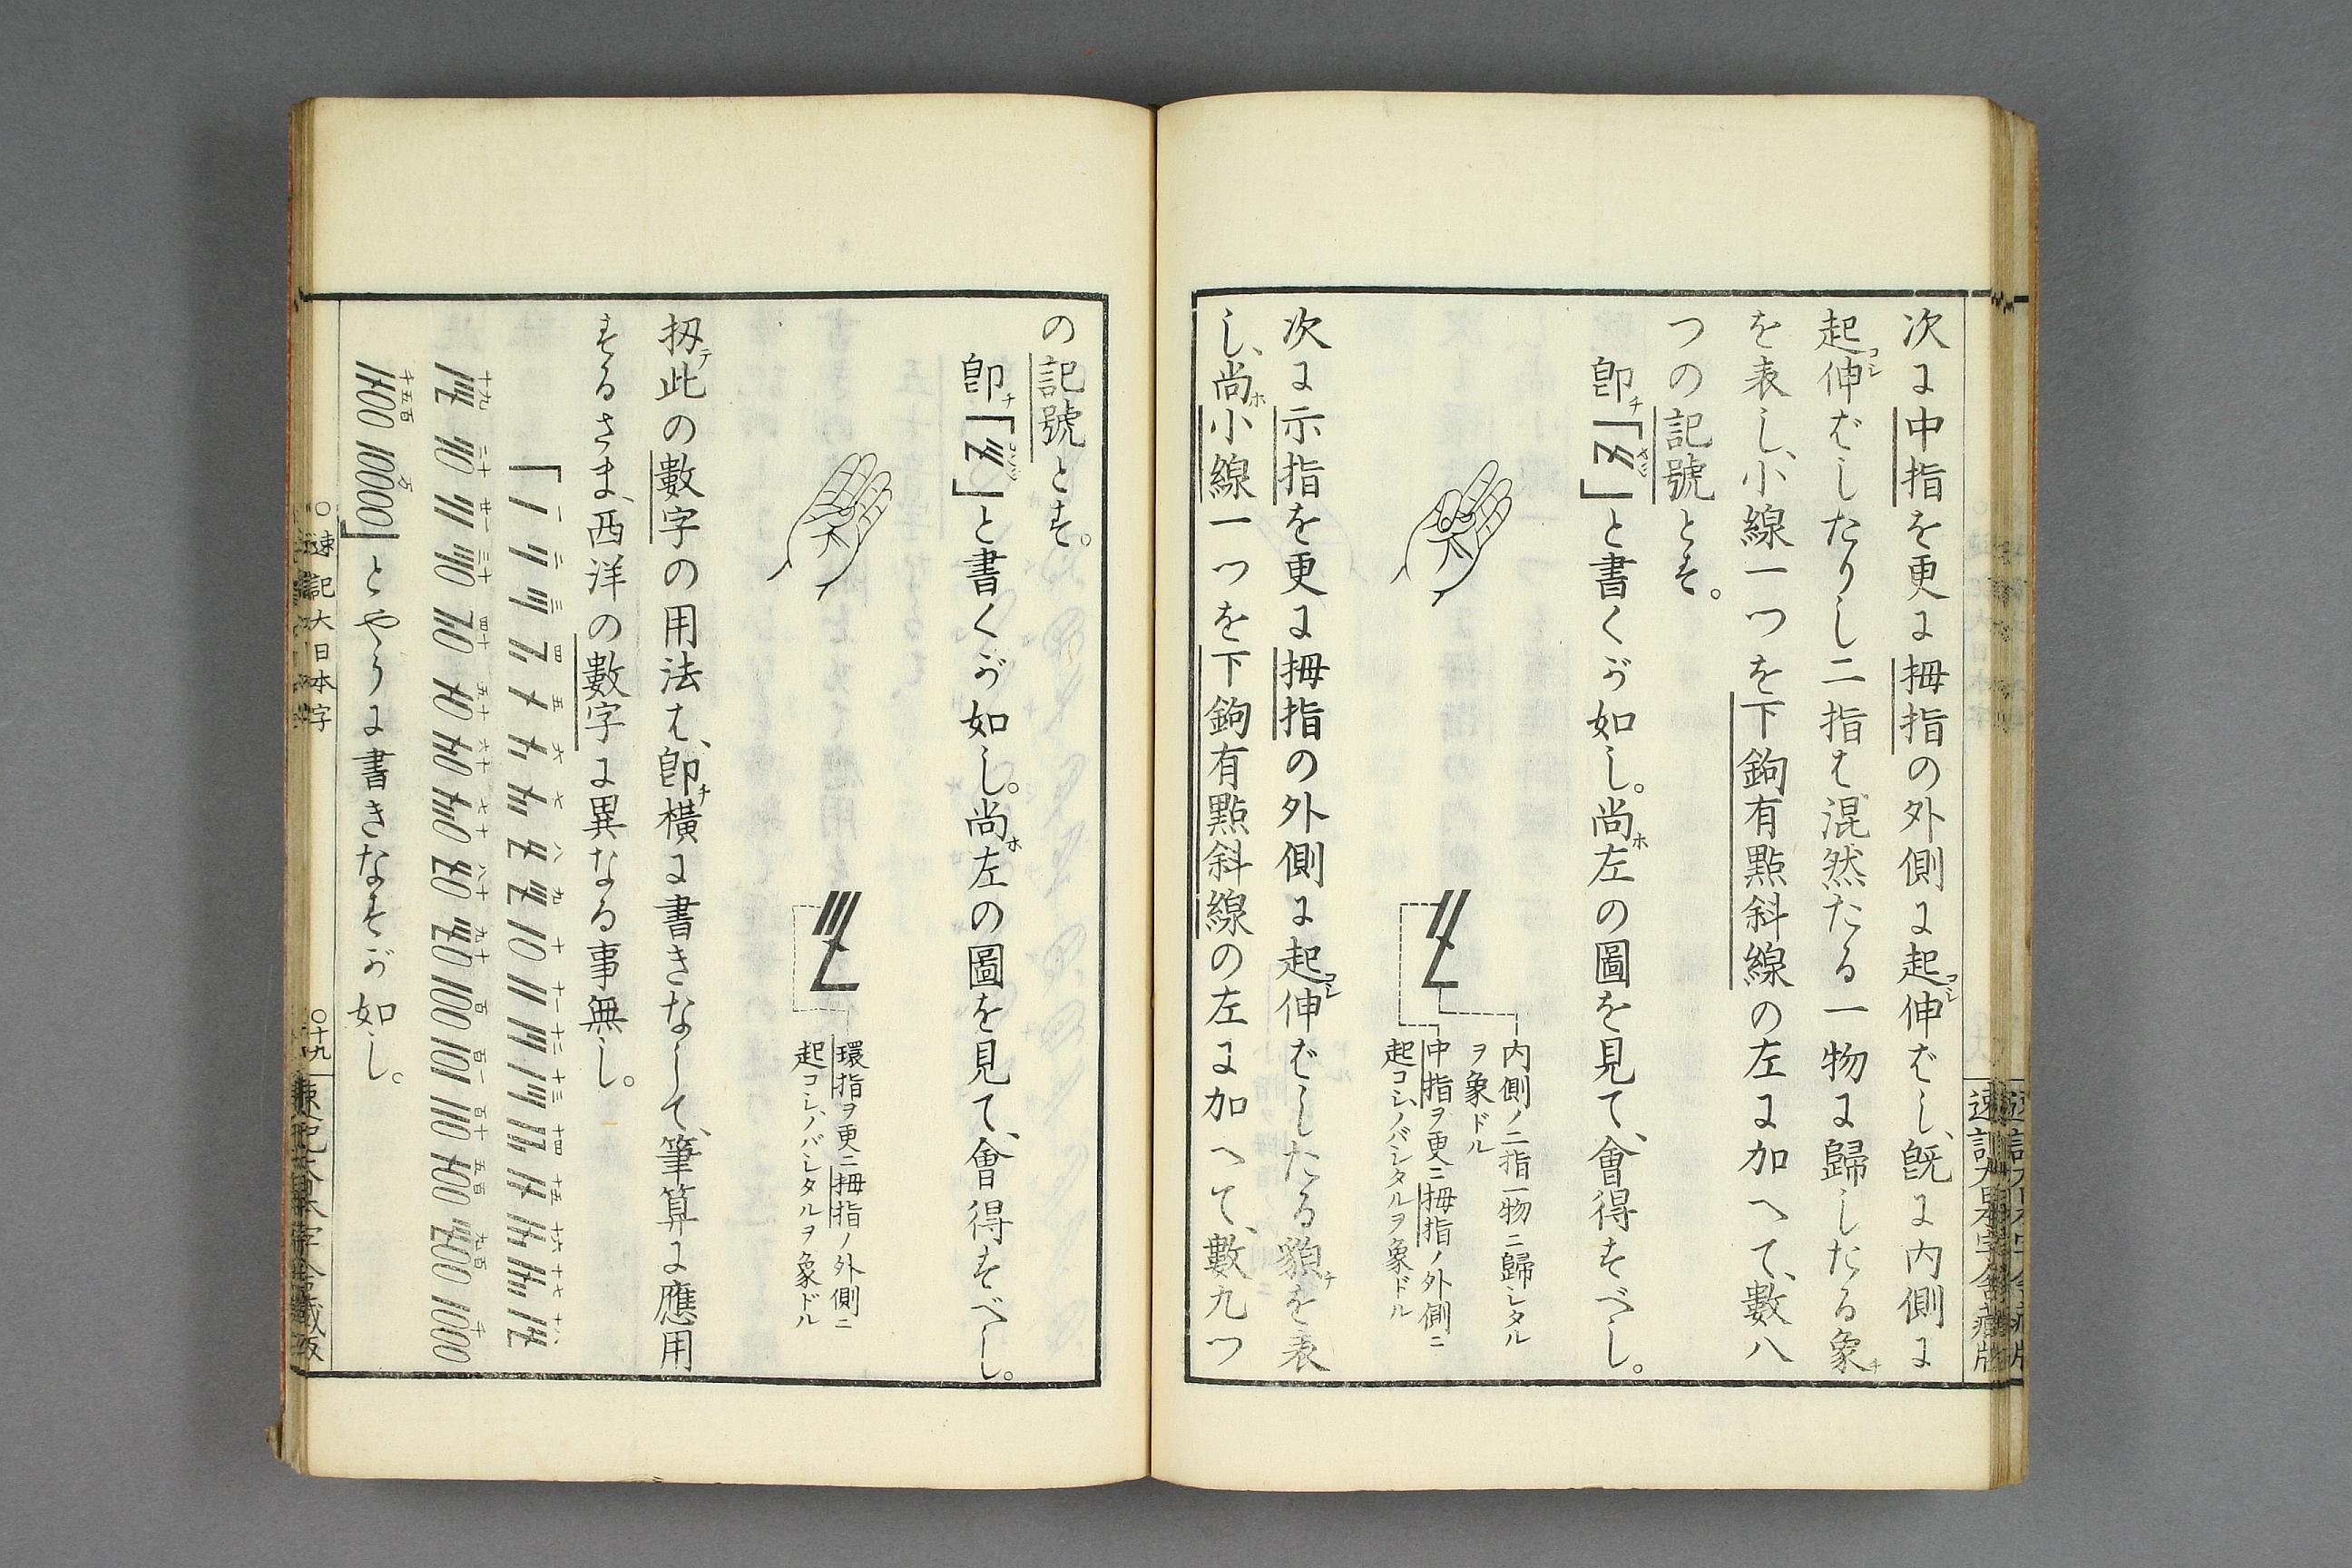 次に中指を更に拇指の外側に起伸ばし、既に内側に
起伸ばしたりし二指は混然たる一物に歸したる象
を表し、小線一つを下鉤有點斜線の左に加へて、數八
つの記號とす。
卽「」と書くが如し。尚左の圖を見て、會得すべし。
内側ノ二指一物ニ歸シタル
ヲ象ドル
中指ヲ更ニ拇指ノ外側ニ
起コシ、ノバシタルヲ象ドル
次に示指を更に拇指の外側に起伸ばしたる貌を表
し、尚小線一つを下鉤有點斜線の左に加へて、數九つ
の記號とす。
卽「」と書くが如し。尚左の圖を見て、會得すべし。
環指ヲ更ニ拇指ノ外側ニ
起コシ、ノバシタルヲ象ドル
扨此の數字の用法は、卽橫に書きなして、筆算に應用
するさま、西洋の數字に異なる事無し。
「一 二 三 四 五 六 七 八 九 十 十一 十二 十三 十四 十五 十六 十七 十八
十九 二十 廿一 三十 四十 五十 六十 七十 八十 九十 百 百一 百十 五百 九百 千
千五百 万」とやうに書きなすが如し。
○速記大日本字
○十九